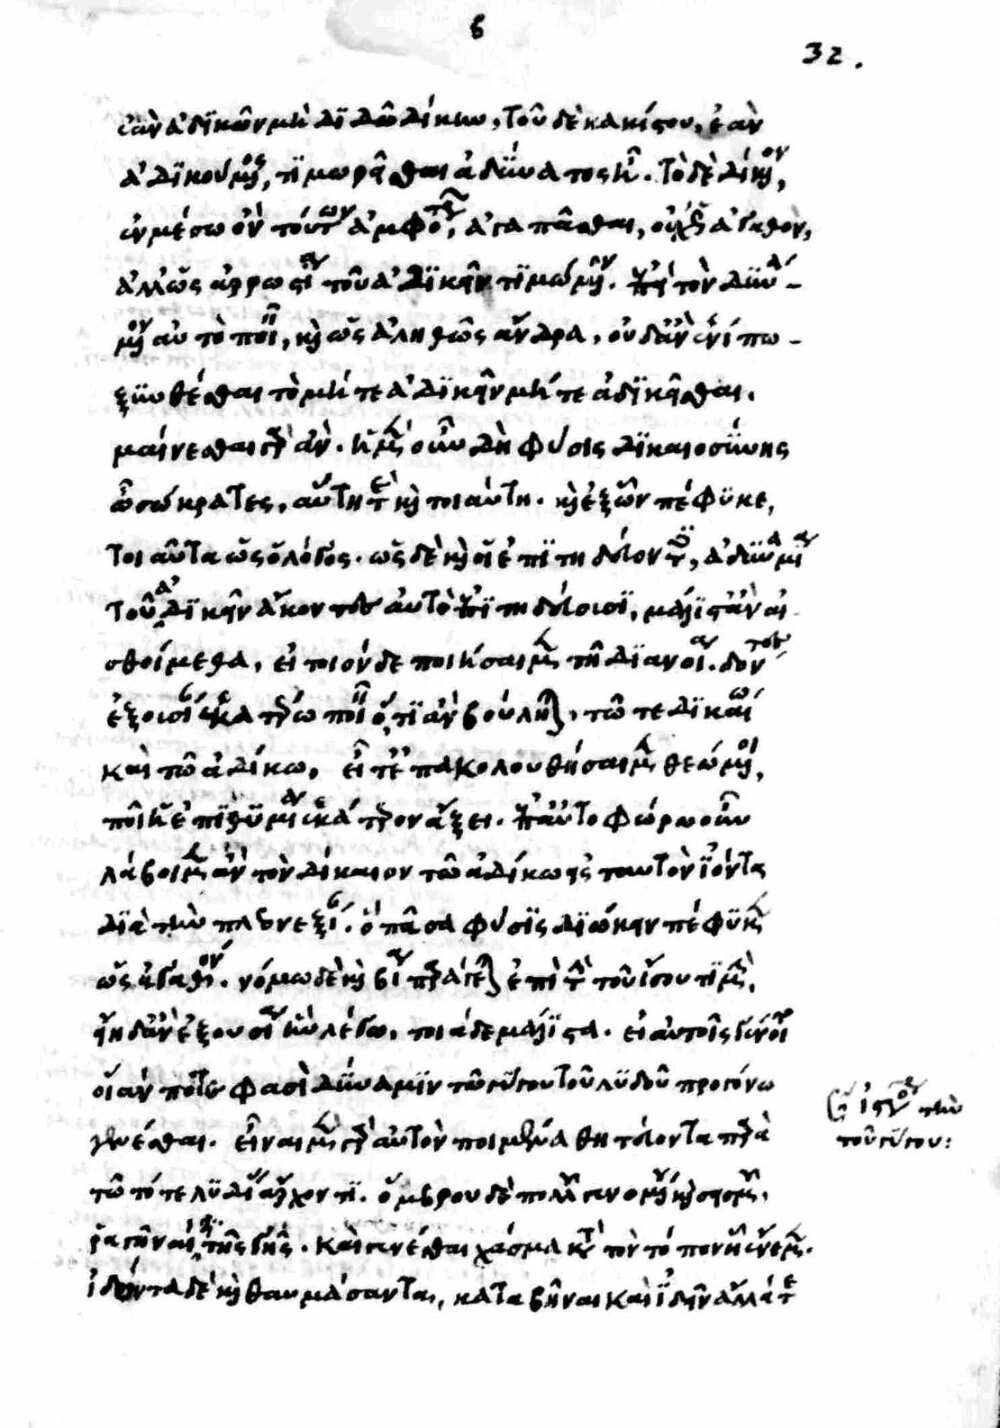 β
32.
ἐὰν ἀδϊκῶν μὴ δϊδῶ δίκην, τοῦ δὲ κακίστου, ἐὰν
ἀδϊκούμενος, τϊμωρεῖσθαι ἀδύνατος ἦ. τὸ δὲ δίκαιον,
ἐν μέσω ὂν τούτων ἀμφοτέρων, ἀγαπᾶσθαι, οὐχ ὡς ἀγαθὸν,
ἀλλ' ὡς ἀρρωστία τοῦ ἀδϊκεῖν τϊμώμενον. ἐπεὶ τὸν δυνά-
μενον αὐτὸ ποιεῖν, καὶ ὡς ἀληθῶς ἄνδρα, οὐδ' ἂν ἑνί πω-
ξυνθέσθαι τὸ μήτε ἀδϊκεῖν μήτε ἀδϊκεῖσθαι.
μαίνεσθαι γὰρ ἄν. ἡ μὲν οὖν δὴ φύσις δϊκαιοσύνης
ὦ σώκρατες, αὕτη τε καὶ τοιαύτη. καὶ ἐξ ὧν πέφϋκε,
τοιαῦτα ὡς ὁ λόγος. ὡς δὲ καὶ οἱ ἐπϊτηδεύοντες, ἀδυναμία
τοῦ ἀδϊκεῖν ἄκοντες αὐτὸ ἐπϊτηδεύουσϊ, μάλϊστ' ἂν αἰ-
σθοίμεθα, εἰ τοιόνδε ποιήσαιμεν τῆ δϊανοία. δόντες
ἐξουσίαν ἑκατέρω ποιεῖν ὅ, τϊ ἂν βούληται, τῶ τε δϊκαίω
καὶ τῶ ἀδίκω, εἶτ' ἐπακολουθήσαιμεν θεώμενοι,
ποῖ ἡ ἐπϊθϋμία ἑκάτερον ἄξει. ἐπ' αὐτοφώρω οὖν
λάβοιμεν ἂν τὸν δίκαιον τῶ ἀδίκω εἰς ταυτὸν ἰόντα
δϊὰ τὴν πλεονεξίαν. ὃ πᾶσα φύσϊς δϊώκειν πέφϋκεν
ὡς ἀγαθόν. νόμω δὲ καὶ βία παράγεται ἐπὶ τὴν τοῦ ἴσου τϊμὴν,
εἴη δ' ἂν ἡ ἐξουσία ἣν λέγω, τοιάδε μάλϊστα. εἰ αὐτοῖς γένοιτο
οἵαν ποτέ φασὶ δύναμϊν τῶ γύγου τοῦ λϋδοῦ προγόνω
γενέσθαι. εἶναι μὲν γὰρ αὐτὸν ποιμένα θητεύοντα παρὰ
τῶ τότε λϋδίας ἄρχοντϊ. ὄμβρου δὲ πολλοῦ γενομένου καὶ σεισμοῦ,
ῥαγῆναί τι τῆς γῆς. καὶ γενέσθαι χάσμα κατὰ τὸν τόπον ἧ ἔνεμεν.
ἰδόντα δὲ καὶ θαυμάσαντα, καταβῆναι καὶ ἰδεῖν ἄλλά τε
ἱστορίαν τὴν
τοῦ γύγου: